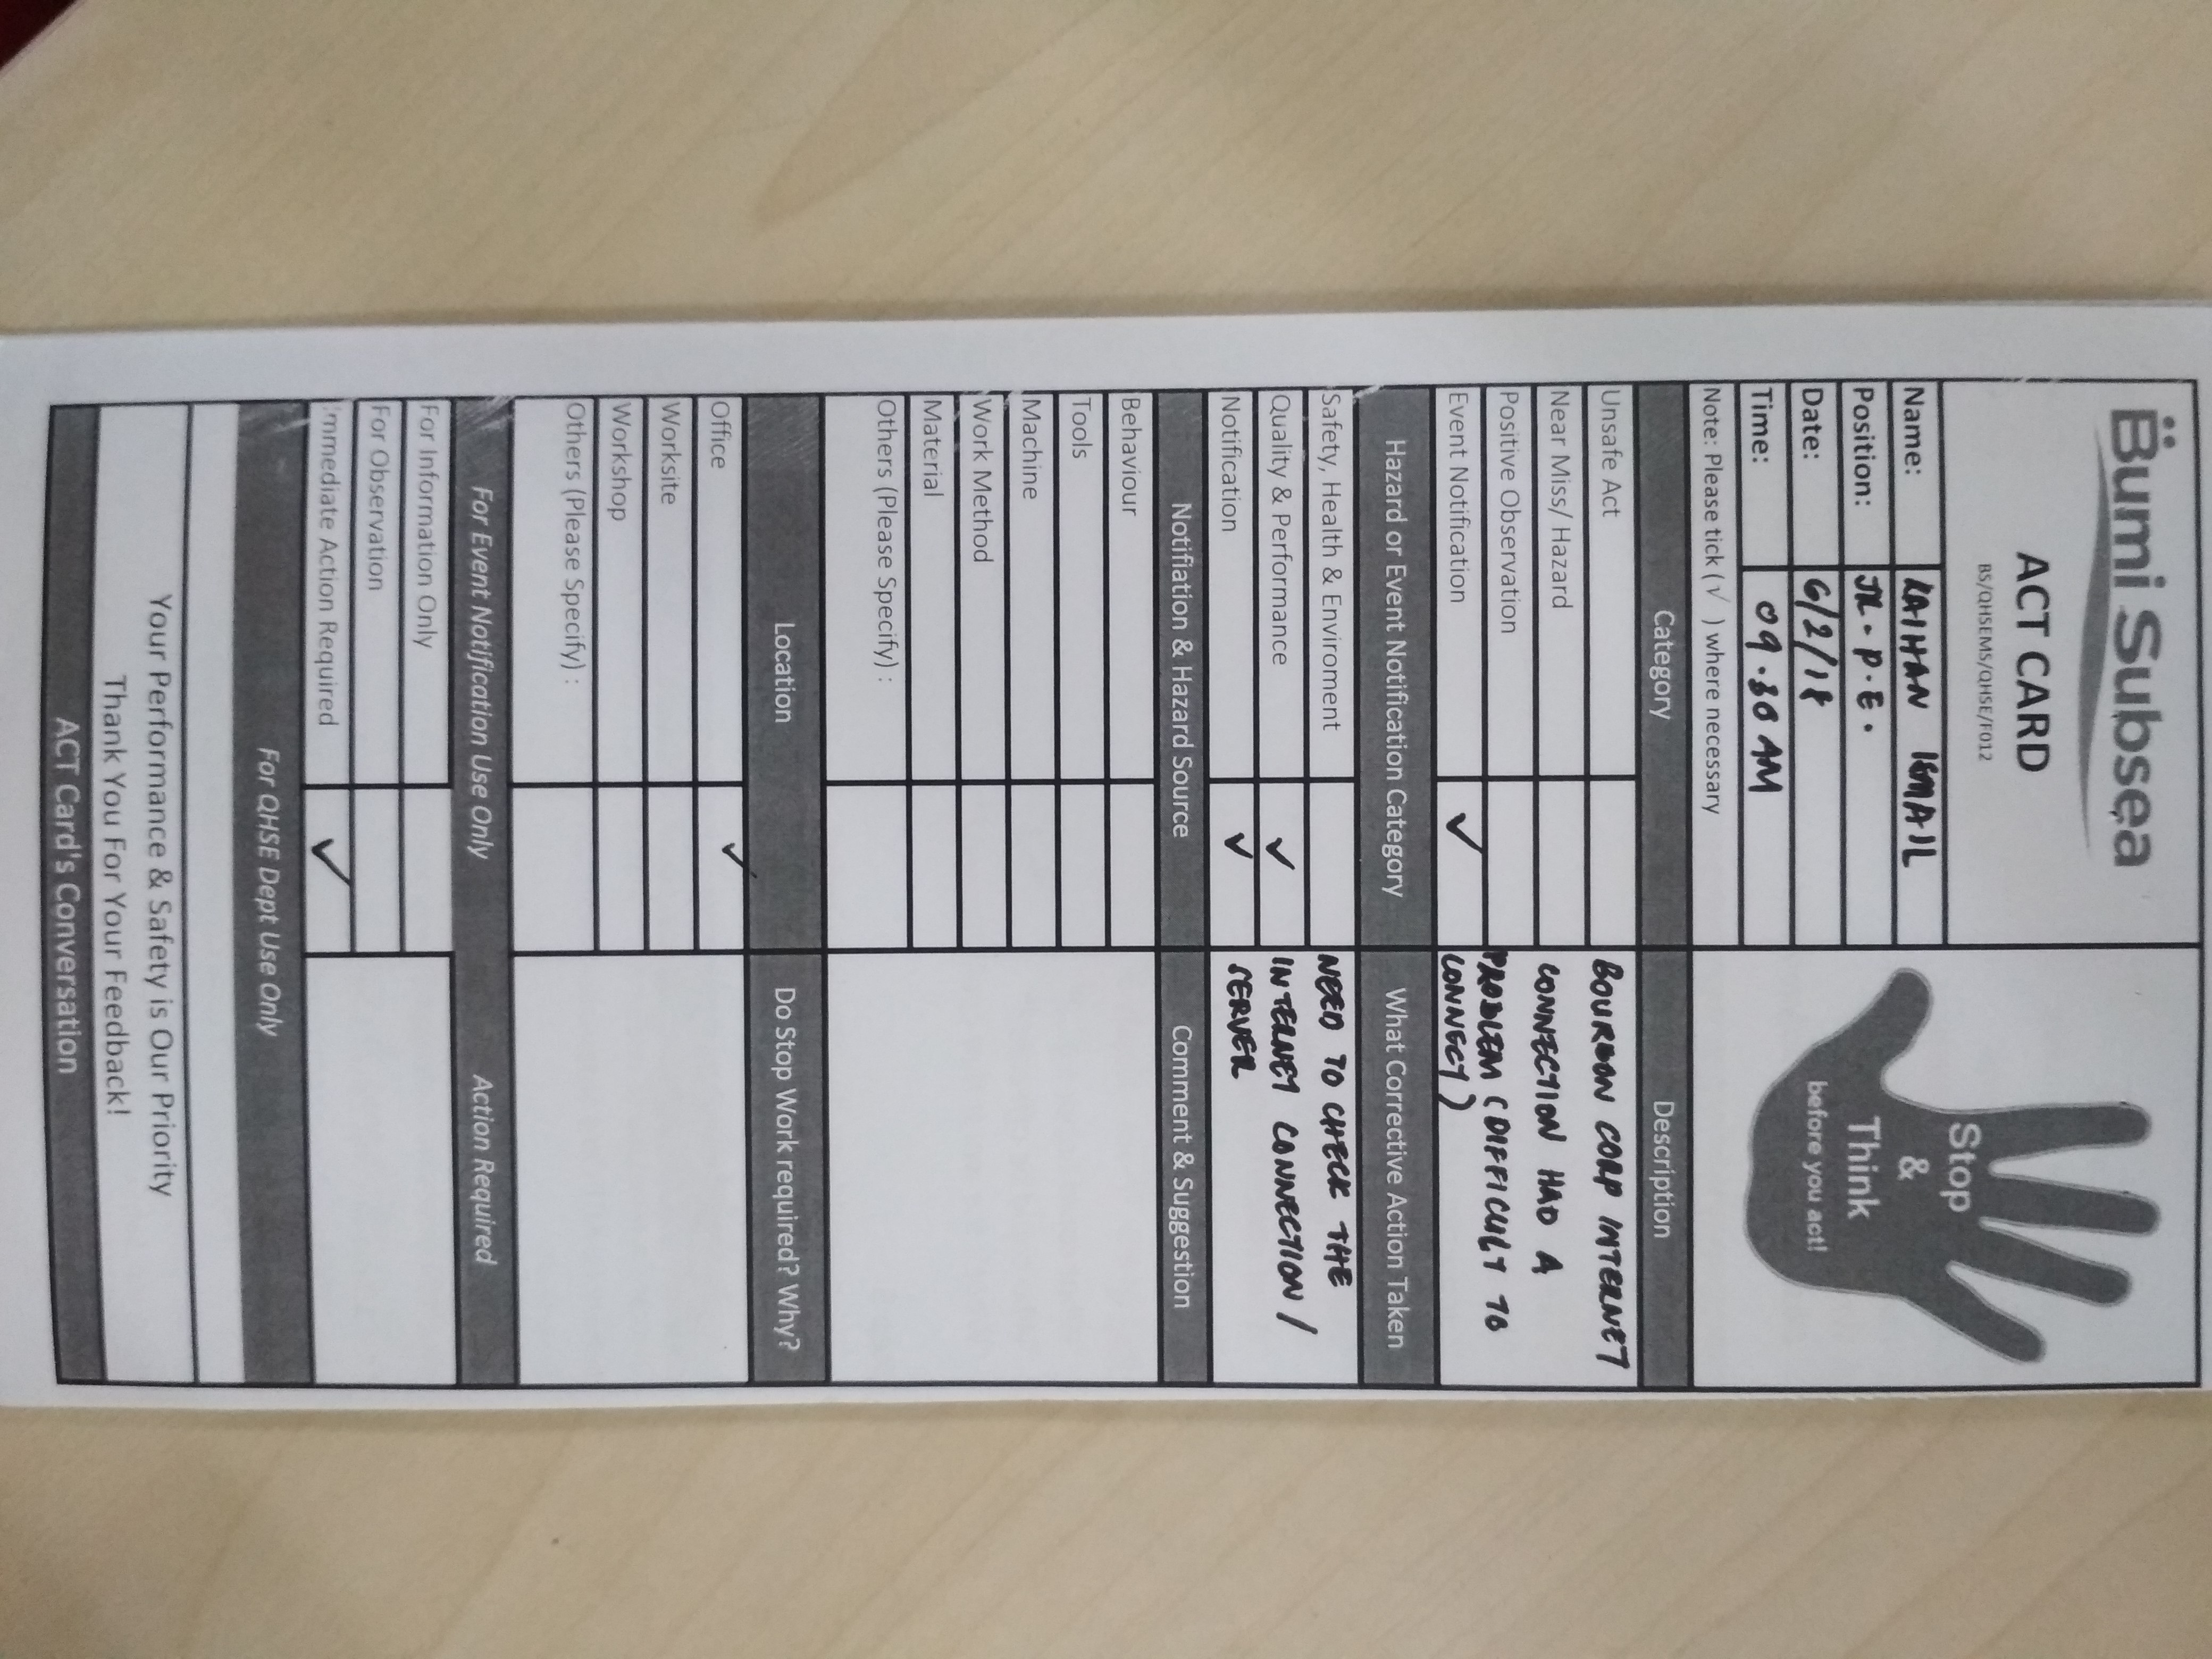 Bumi Subsea
ACT CARD
BS/QHSEMS/QHSE/F012
Stop
&
Think
before you act!
Name: RAIHAN ISMAIL
Position: JR. P.E.
Date: 6/2/18
Time: 09.30 AM
Note: Please tick (√ ) where necessary
Category Description
Unsafe Act
Near Miss/ Hazard
Positive Observation
Event Notification ✓
BOURBON CORP INTERNET
CONNECTION HAD A
PROBLEM (DIFFICULT TO
CONNECT)
Hazard or Event Notification Category What Corrective Action Taken
Safety, Health & Enviroment
Quality & Performance ✓
Notification ✓
NEED TO CHECK THE
INTERNET CONNECTION /
SERVER
Notifiation & Hazard Source Comment & Suggestion
Behaviour
Tools
Machine
Work Method
Material
Others (Please Specify) :
Location Do Stop Work required? Why?
Office ✓
Worksite
Workshop
Others (Please Specify) :
For Event Notification Use Only Action Required
For Information Only
For Observation
Immediate Action Required ✓
For QHSE Dept Use Only
Your Performance & Safety is Our Priority
Thank You For Your Feedback!
ACT Card's Conversation